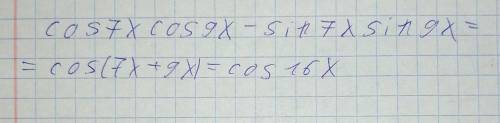 cos7x cos9x - sin7x sin9x =
= cos(7x+9x) = cos16x